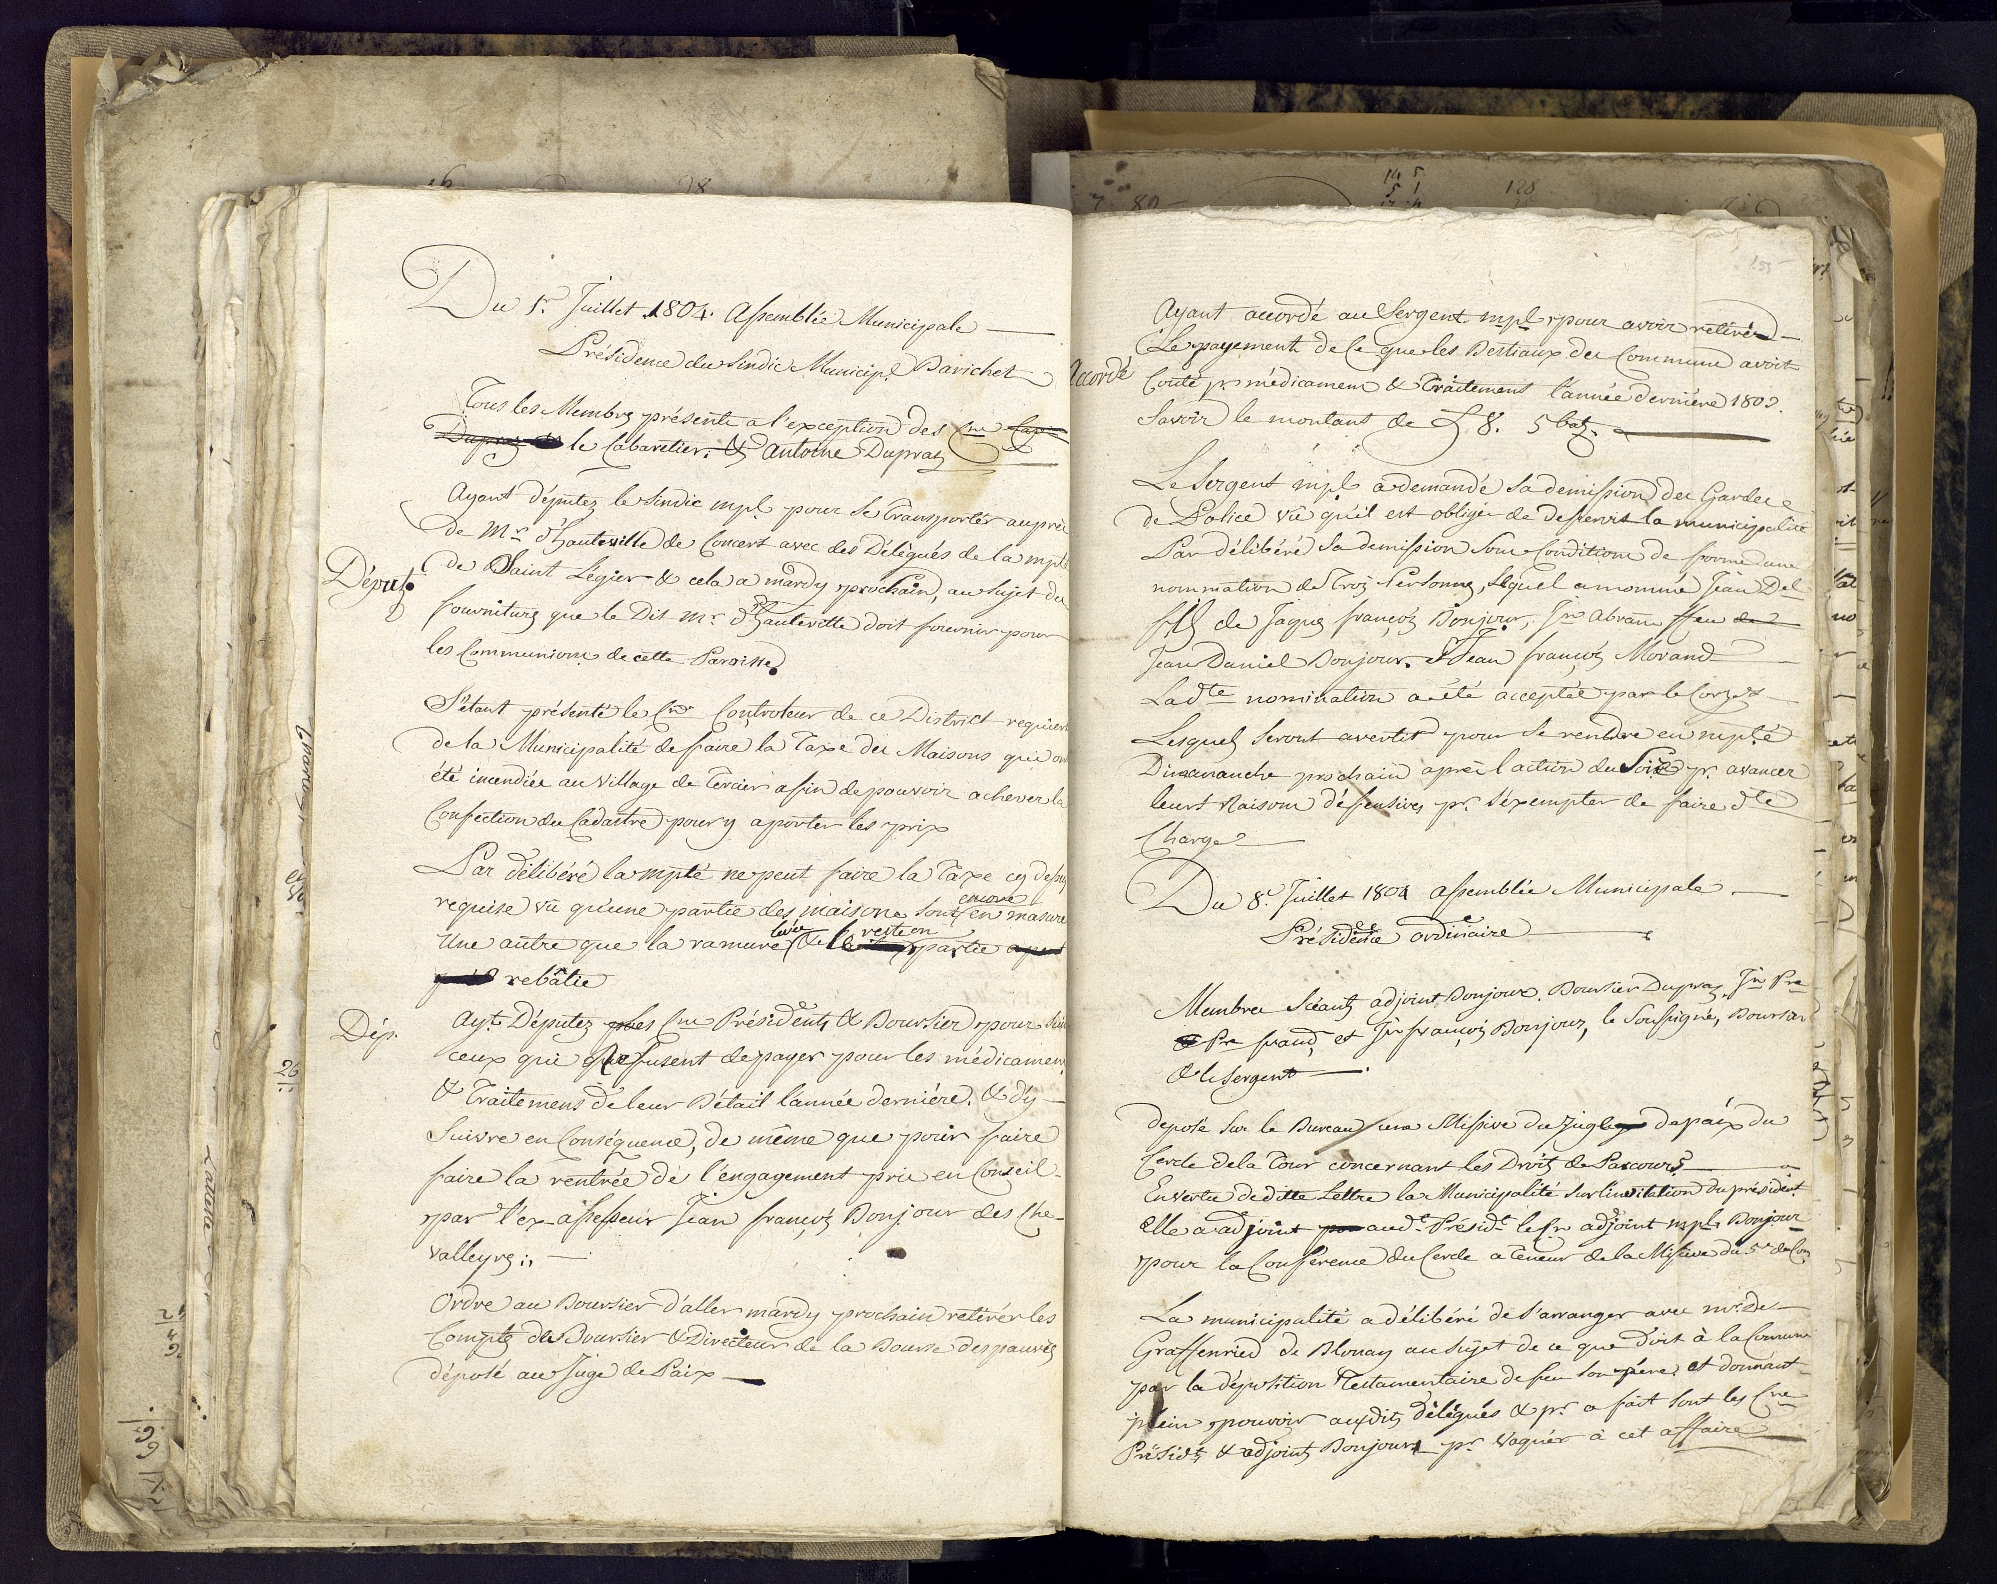 Du 1.r Juillet 1804. Assemblée Municipale
Présidence du Sindic Municipl. Barichet
Tous les Membres présents a l'exception des Cne
le Cabaretier. & Antoine Dupraz
Ayant Députez le Sindic mpl. pour se transporter auprès
de Mr. d'Hauteville de Concert avec des Délégués de la mplté
Députe
de Saint Légier & cela a mardy prochain, au sujet des
fournitures que le Dit mr. d'Hauteville doit fournir pour
les Communions de cette Paroisse
S'étant présenté le Cne. Controleur de ce District requiert
de la Municipalité de faire la Taxe des Maisons qui ont
été incendiée au Village de Tercier afin de pouvoir achever la
Confection du Cadastre pour y aporter les prix
Par délibéré la mpté ne peut faire la Taxe cy dessus
encore
requise vû qu'une partie des maisons sont en masure
levée restion
Une autre que la ramure & le partie
rebatie
Dép.
Ayt. Députez les Cne Présidents & Boursier pour
ceux qui refusent de payer pour les médicamens
& Traitemens de leur Bétail l'année dernière. & d'y
Suivre en Conséquence, de même que pour faire
faire la rentrée de l'engagement pris en Conseil
par l'ex assesseur Jean françois Bonjour des Che-
valleyres
Ordre au Boursier d'aller mardy prochain retirer les
Comptes de Boursier & Directeur de la Bourse des pauvres
déposé au Juge de Paix
Ayant accordé au Sergent mpl. pour avoir retiré
Le payement de Ce que les Bestiaux du Commun avoit
Accordé
Couté pr. médicamens & Traitement l'année dernière 1803.
Savoir le montant de 8. 5 batz.
Le Sergent mpl. a demandé sa demission des Gardes
de Police vû qu'il est obligé de desservir la municipalité
Par délibéré sa demission sous Condition de forme d'une
nommation de Trois Personnes, lequel a nommé Jean Del
fils de Jaques françois Bonjour, Jn. Abram ffeu
Jean Daniel Bonjour. & Jean françois Morand
La dte nomination a été acceptée par le Corps
Lesquels seront avertit pour se rendre en mpté
Dimanche prochain après l'action du Soir pr. avancer
leurs Raisons défensives pr. s'éxempter de faire dte
Charge
Du 8e. Juillet 1804 assemblée Municipale
Présidence ordinaire
Membres Scéants adjoint Bonjour. Boursier Dupraz, Jn Pre
Pre et Jn françois Bonjour, le Soussigné,
& le Sergent
deposé sur le Bureau une Missive du Juge de paix du
Cercle de la Tour concernant les Droits de Parcours
En vertu de ditte Lettre la Municipalité sur l'invitation du président
Elle a adjoint au dt. Présidt. le Cn adjoint mpl. Bonjour
pour la Conférence du Cercle a teneur de la Missive du 5e
La municipalité a délibéré de s'arranger avec mr. de
Graffenried de Blonay au sujet de ce que doit à la Comune
par la déposition Testamentaire de feu son père, et donnant
plein pouvoir aux dits délégués & pr. a fait sont les Cne
Présidt. & adjoint Bonjour pr. vaquér à cet affaire